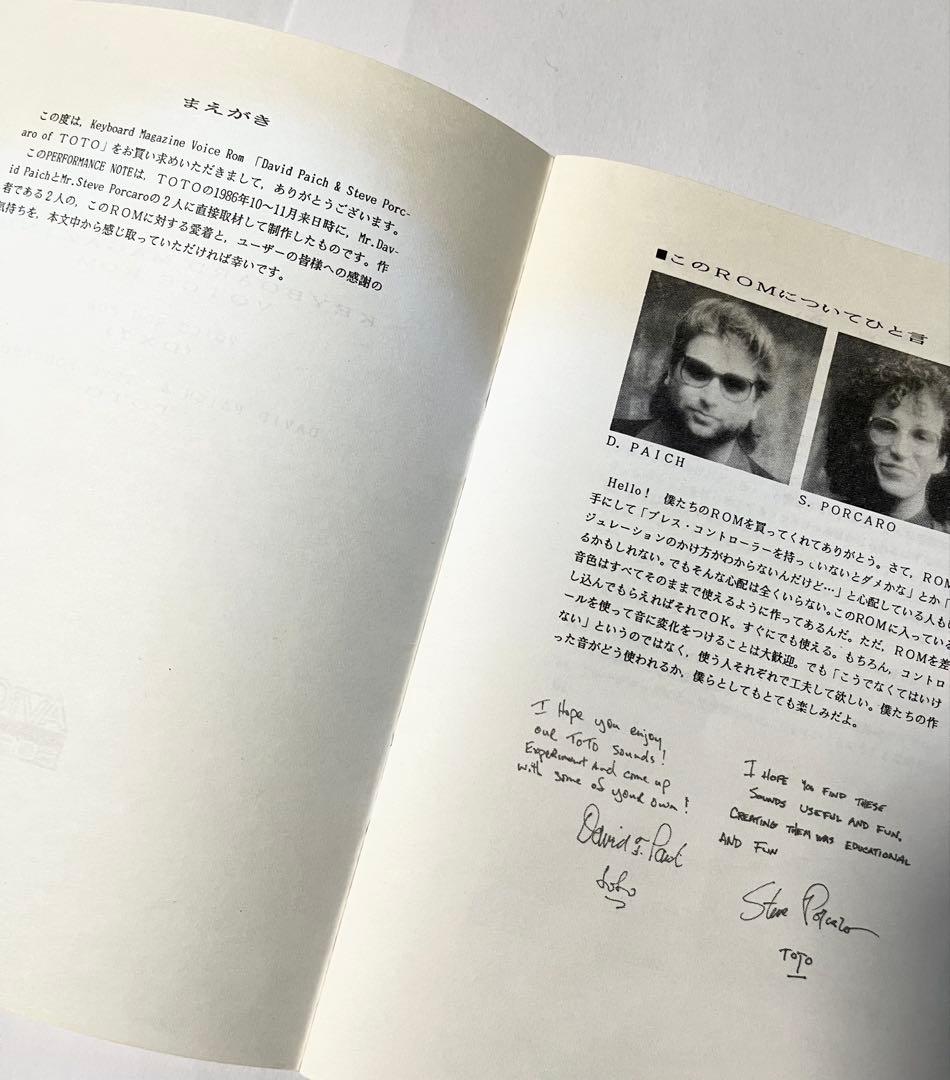 まえがき
この度は，Keyboard Magazine Voice Rom 「David Paich & Steve Porc-
aro of TOTO」をお買い求めいただきまして，ありがとうございます。
このPERFORMANCE NOTEは，TOTOの1986年10〜11月来日時に，Mr.Dav-
id PaichとMr.Steve Porcaroの2人に直接取材して制作したものです。作
者である2人の，このROMに対する愛着と，ユーザーの皆様への感謝の
気持ちを，本文中から感じ取っていただければ幸いです。
■このROMについてひと言
D. PAICH
S. PORCARO
Hello！ 僕たちのROMを買ってくれてありがとう。さて，ROM
手にして「ブレス・コントローラーを持っていないとダメかな」とか「
ジュレーションのかけ方がわからないんだけど…」と心配している人も
るかもしれない。でもそんな心配は全くいらない。このROMに入っている
音色はすべてそのままで使えるように作ってあるんだ。ただ，ROMを差
し込んでもらえればそれでOK。すぐにでも使える。もちろん，コントロ
ールを使って音に変化をつけることは大歓迎。でも「こうでなくてはいけ
ない」というのではなく，使う人それぞれで工夫して欲しい。僕たちの作
った音がどう使われるか，僕らとしてもとても楽しみだよ。
I Hope you enjoy,
our TOTO sounds!
Experiment and come up
with some of your own!
David F. Paich
toto
I HOPE YOU FIND THESE
SOUNDS USEFUL AND FUN.
CREATING THEM WAS EDUCATIONAL
AND FUN
Steve Porcaro
TOTO